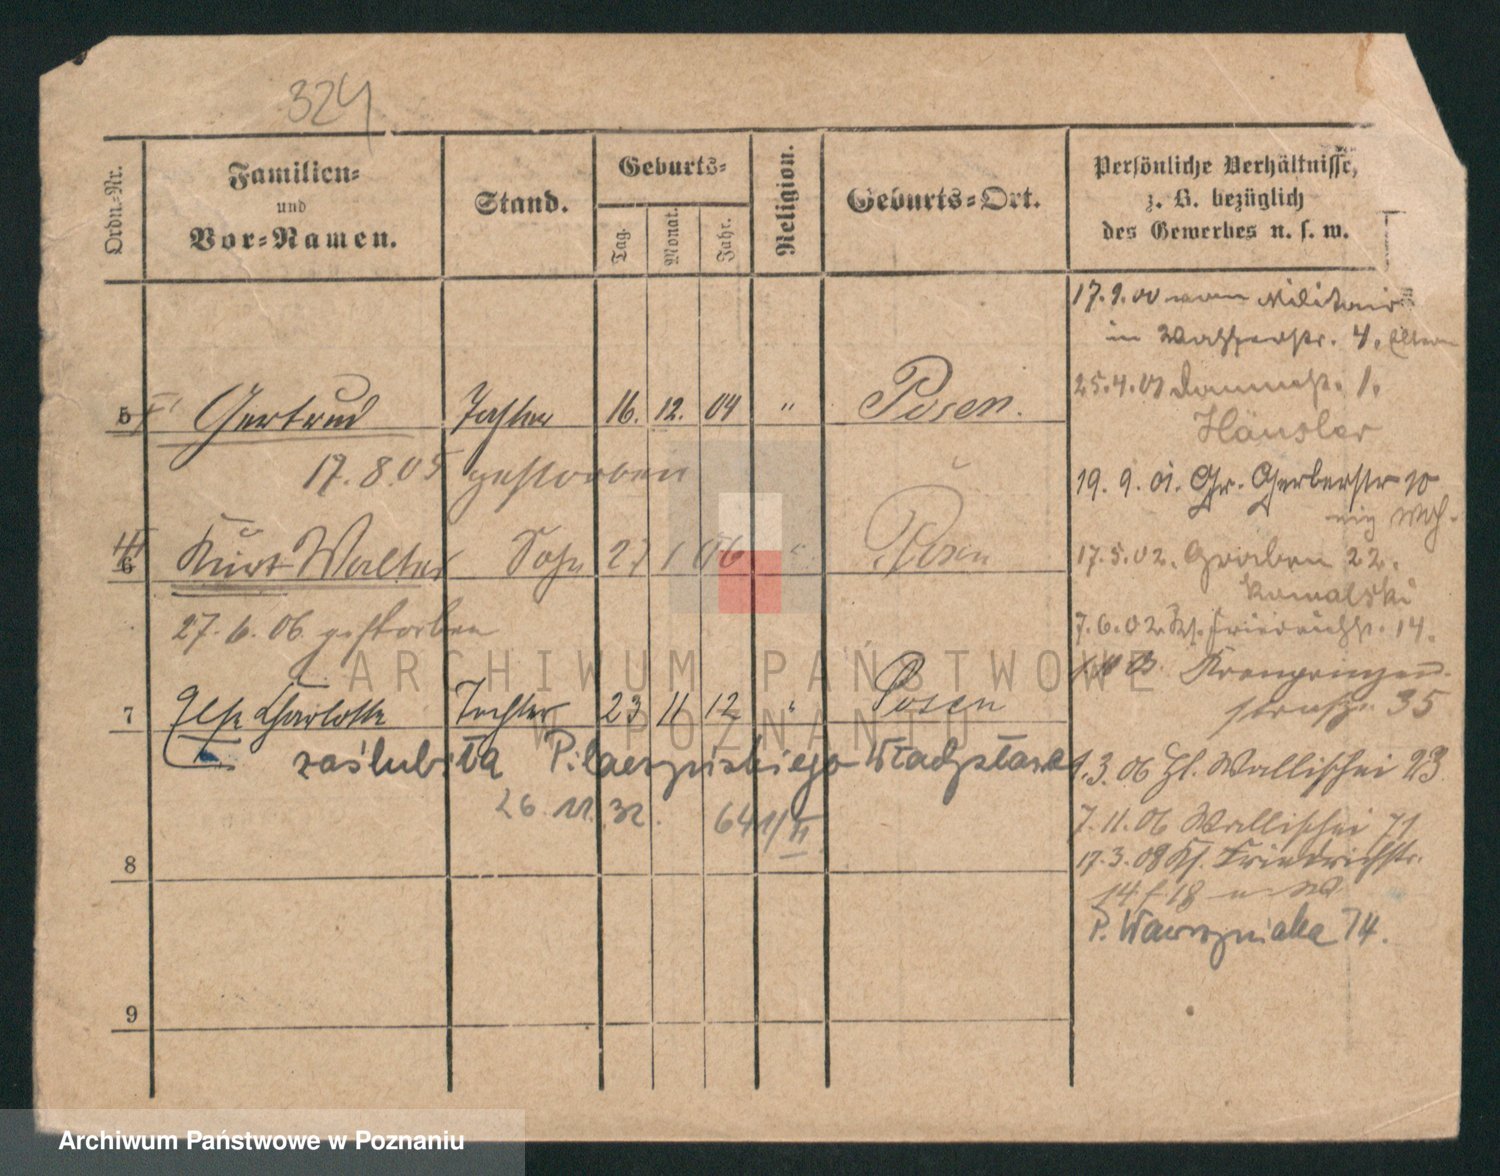 324
Ordn.-Nr.
Familien-
und
Vor-Namen.
Stand.
Geburts-
Tag.
Monat.
Jahr.
Religion.
Geburts-Ort.
Persönliche Verhältnisse,
z. B. bezüglich
des Gewerbes u. s. w.
17.9.00 vom Militair
in Wasserstr. 4. Eltern
25.4.01 1.
Häusler
5 Gertrud Tochter 16. 12. 04 " Posen.
17.8.05 gestorben
19. 9. 01. Gr. Gerberstr 10
6 Kurt Walter Sohn 27 1 06 " Posen
17.5.02. Graben 22.
Kowalski
27.6.06 gestorben
7.6.02. Kl. Friedrichstr. 14.
Kronprinzen-
strasse 35
7 Else Charlotte Tochter 23 11 12 " Posen
zaślubiła Pilaczyńskiego Władysława
26.11.32. 641/II
1.3.06 Gr. Wallischei 23
7.11.06 Wallischei 71
17.3.08 Kl. Friedrichstr.
14
P. Wawrzyniaka 74.
8
9
ARCHIWUM PAŃSTWOWE
W POZNANIU
Archiwum Państwowe w Poznaniu